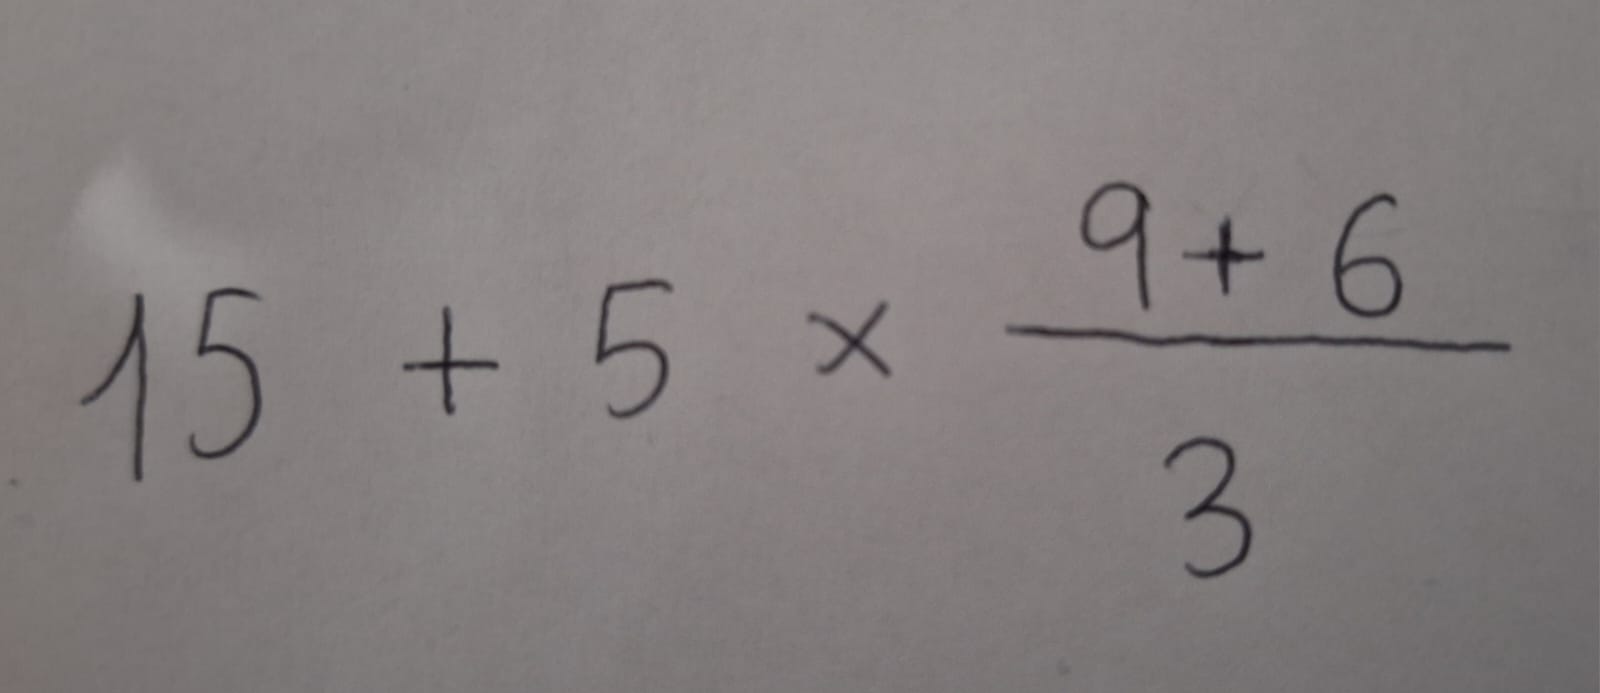 15 + 5 × \frac{9 + 6}{3}